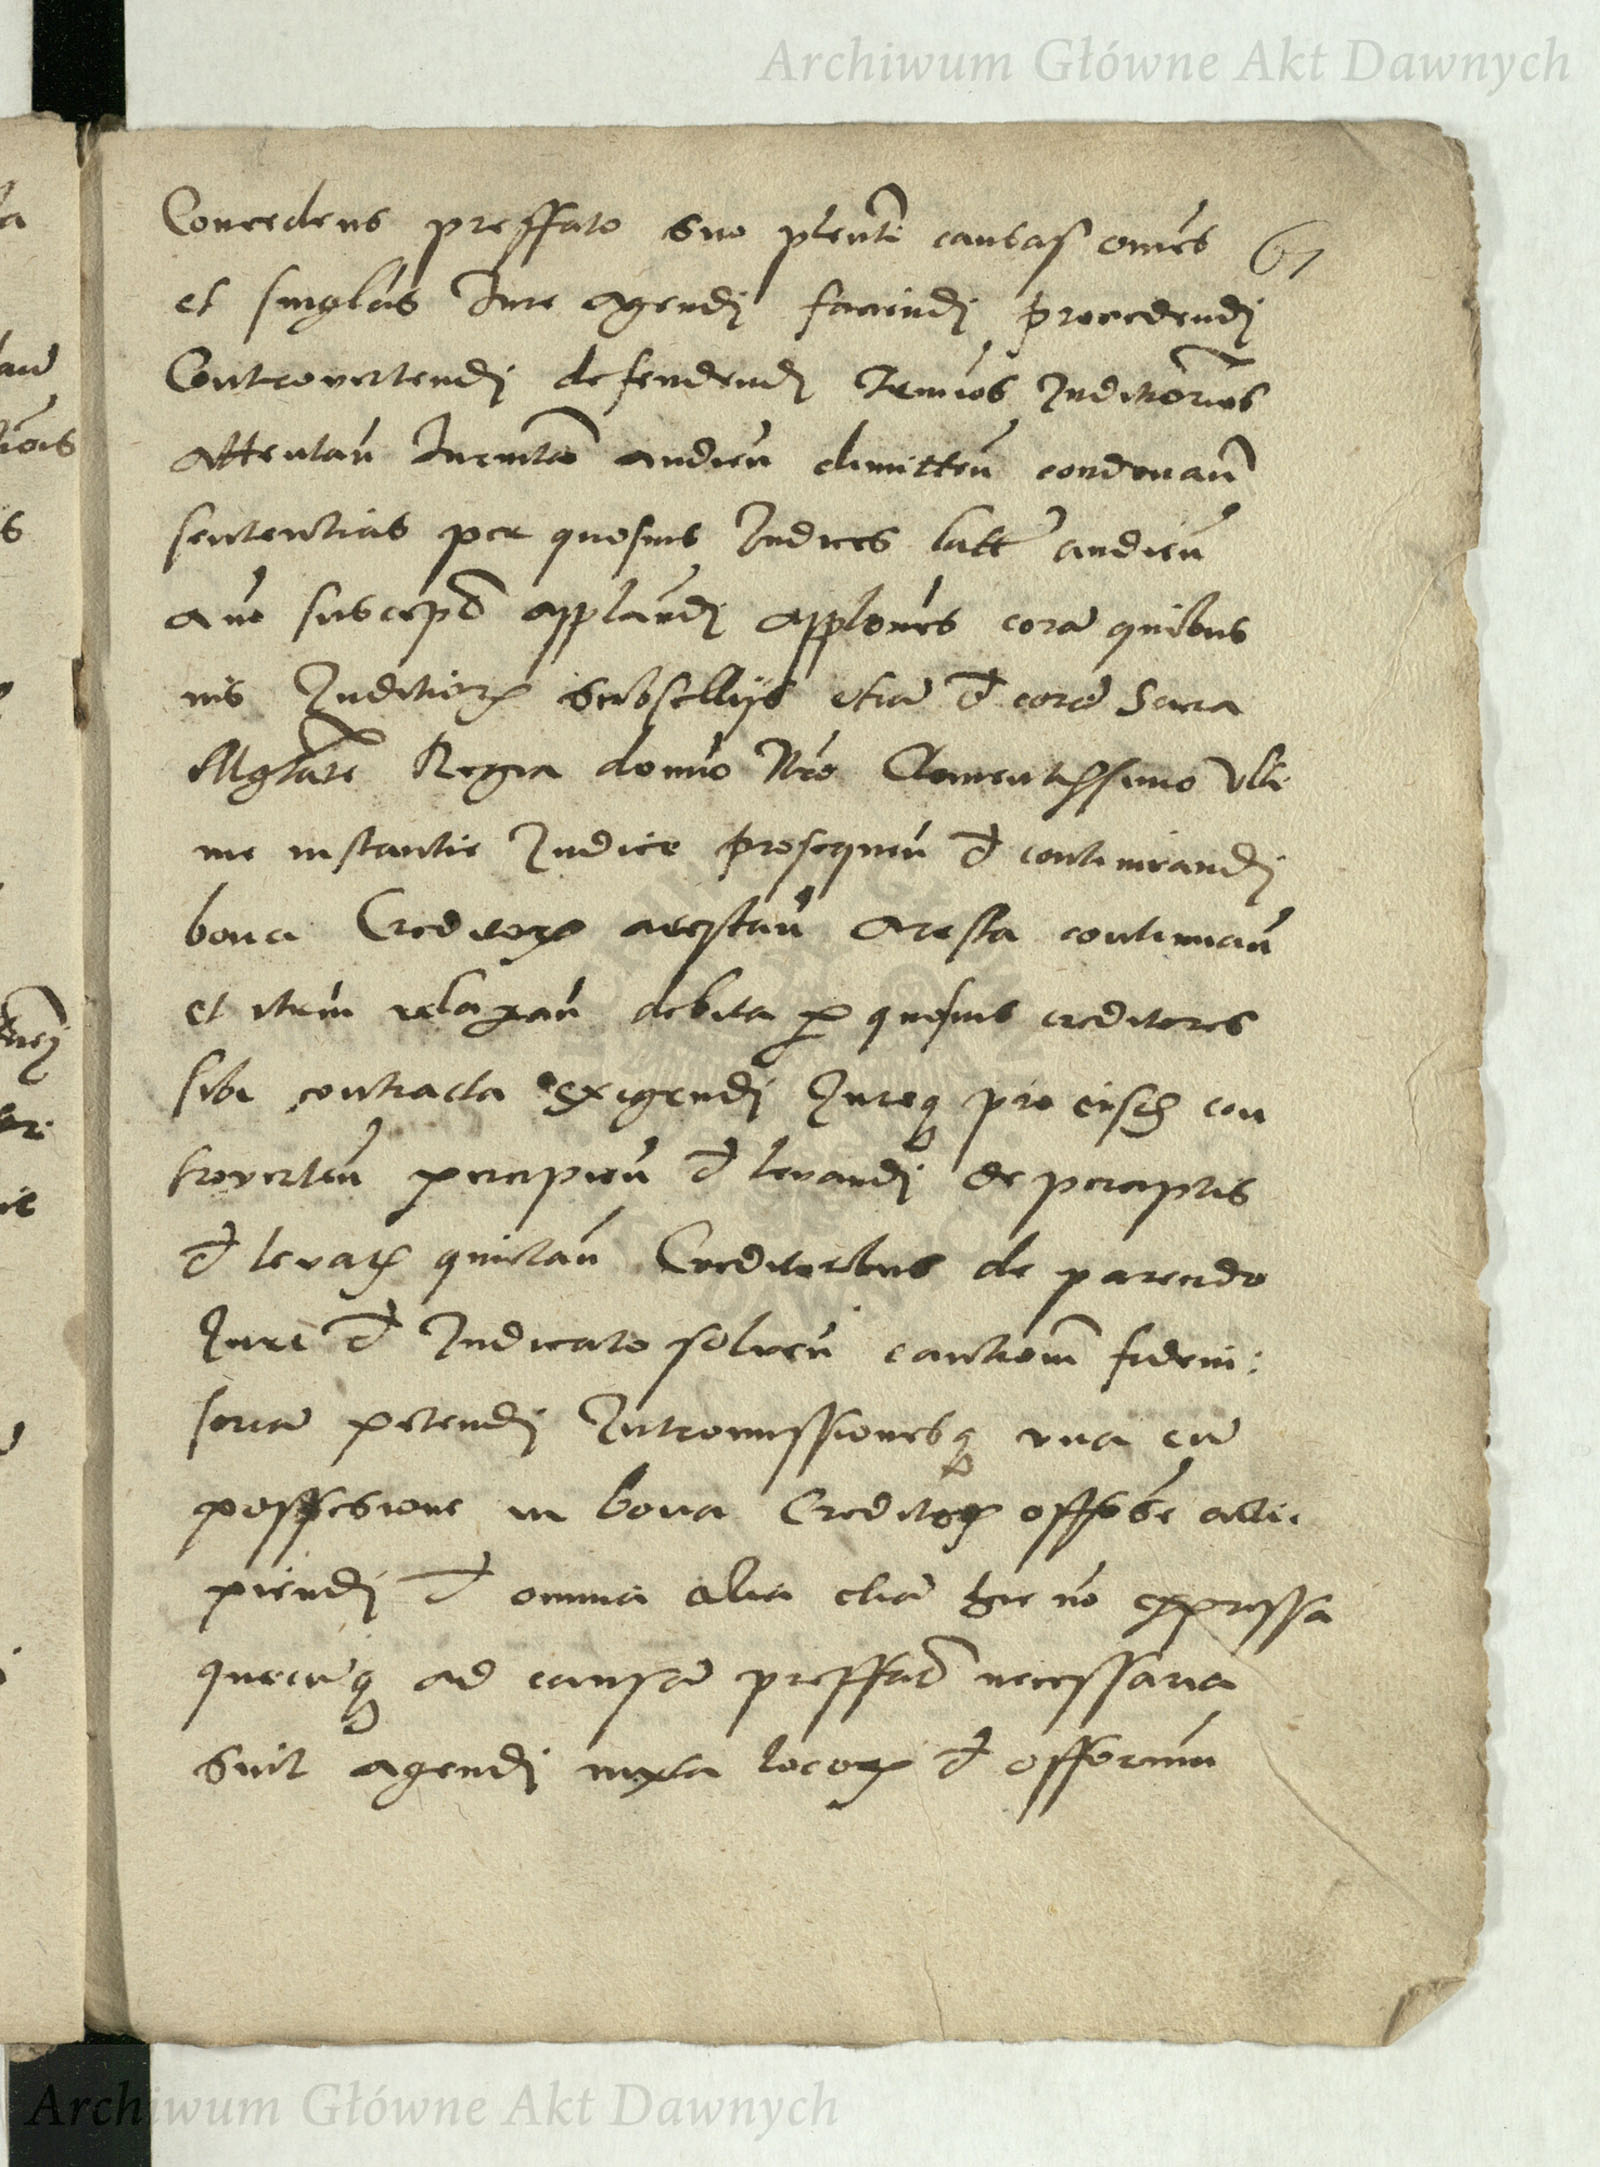 Archiwum Główne Akt Dawnych
Concedens preffato suo plenti causas omes
61
et singlas Iure agendi faciendi procedendi
Controvertendi defendendi Termios Inditiorios
attentan audien dimitten condonan
sententias per quosuis Iudices latt audien
a no suscepd applandi applones cora quibus
uis Inditiorꝝ Subsellijs etia et cora Sacra
Mgtate Regia domio Nro Clementissimo Vlti
me instantie Iudice prosequen et continuandi
bona Creditorꝝ arestan Aresta continuan
et iterum relaxan debita ꝑ quosuis creditores
sibi contracta exigendi Iureqꝫ pro eisd con
trouerten percipien et leuandi de perceptis
et leuatꝭ quietan Creditoribus de parendo
Iuri et Iudicato soluen cautionem fideiu:
soria petendi Intromissionesqꝫ vna cu
possessione in bona Creditorꝝ offose acci
piendi et omnia alia etia hic no expressa
quecuqꝫ ad causa preffata necessaria
sunt agendi iuxta locorꝝ et offorum
Archiwum Główne Akt Dawnych